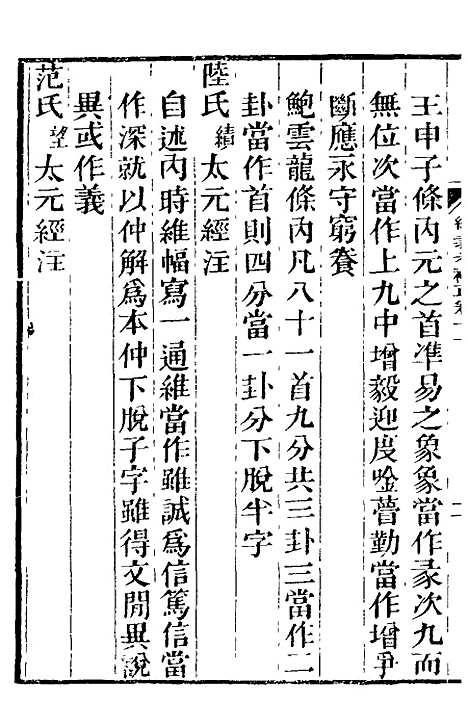 王申子條內元之首準易之象象當作彖次九而
無位次當作上九中增毅迎度唫瞢勤當作增爭
斷應永守窮養
鮑雲龍條內凡八十一首九分共三卦三當作二
卦當作首則四分當一卦分下脫半字
陸氏績太元經注
自述內時維幅寫一通維當作雖誠爲信篤信當
作深就以仲解爲本仲下脫子字雖得文閒異說
異或作義
范氏望太元經注